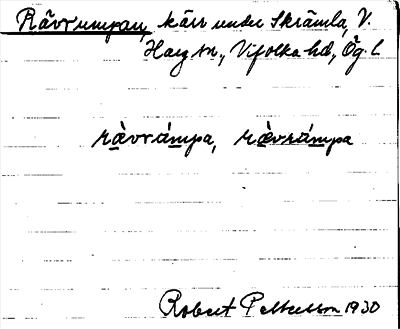 Rävrumpan, kärr under Skrämla, V.
Harg sn., Vifolka hd, Ög. l.
ràvrámpa, ràvrámpa
Robert Pettersson 1930